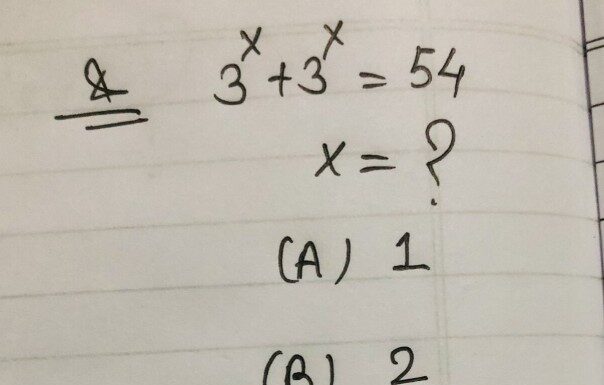 Q 3^x + 3^x = 54
x = ?
(A) 1
(B) 2